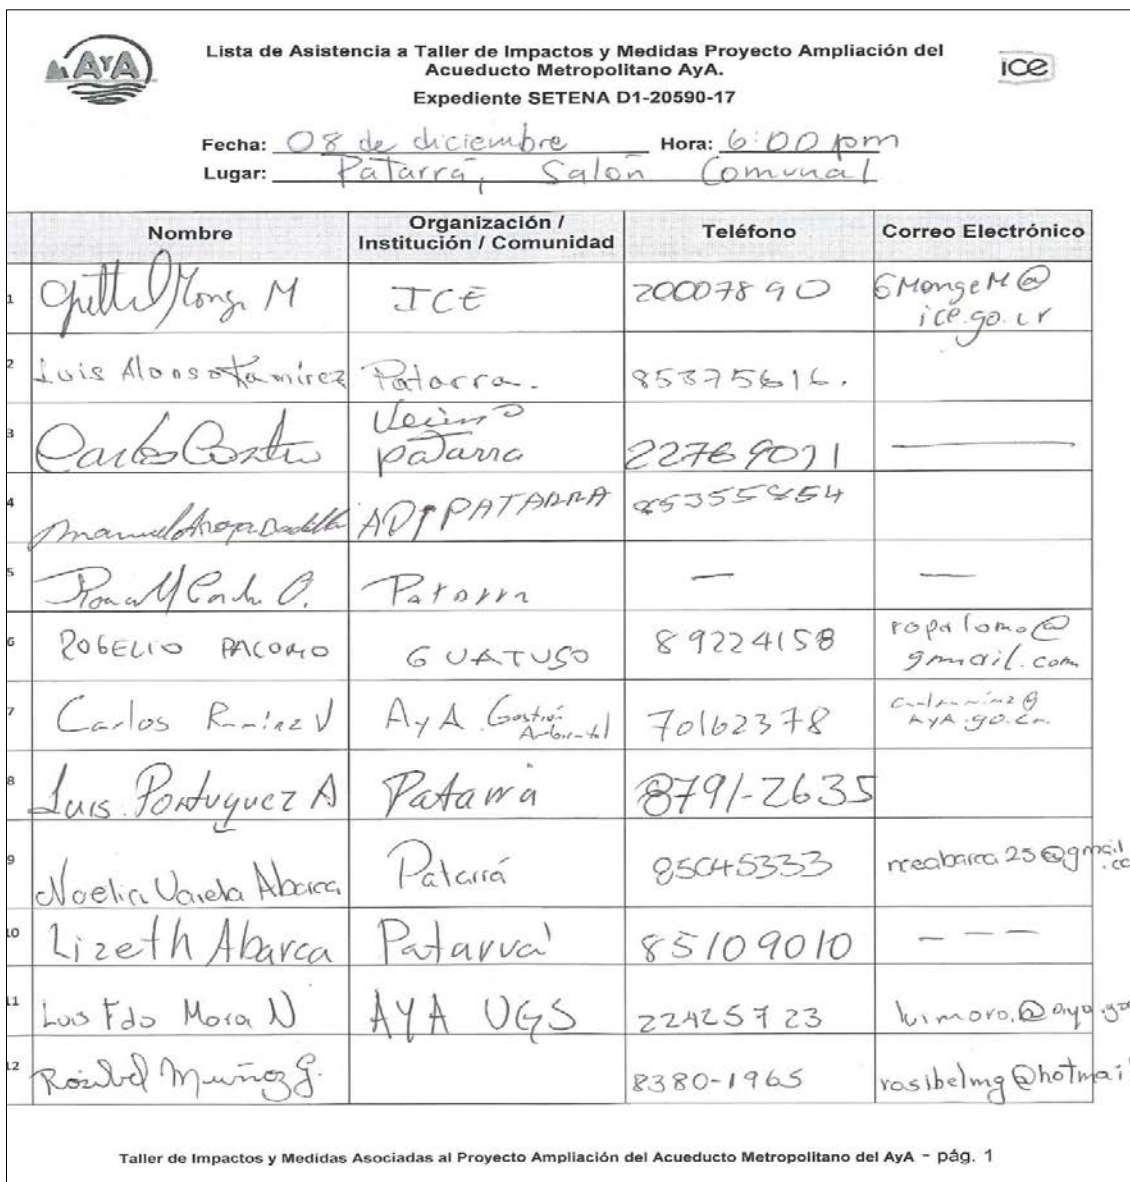 AYA
Lista de Asistencia a Taller de Impactos y Medidas Proyecto Ampliación del
Acueducto Metropolitano AyA.
ice
Expediente SETENA D1-20590-17
Fecha: 08 de diciembre Hora: 6:00 pm
Lugar: Patarrá, Salón Comunal
Nombre Organización / Institución / Comunidad Teléfono Correo Electrónico
1 M ICE 20007890 GMongeM@
ice.go.cr
2 Luis Alonso Ramírez Patarra. 85375616.
3 Carlos Vecino
patarra 22769071 —
4 Manuel ADI PATARRA
5 Patarra — —
6 ROGELIO GUATUSO 89224158 ropalomo@
gmail.com
7 Carlos Ramírez V AyA Gestión
Ambiental 70162378
AyA.go.cr.
8 Luis Portuguez A Patarrá 8791-2635
9 Noelia Varela Abarca Patarrá 85045333
10 Lizeth Abarca Patarrá 85109010 — — —
11 Luis Fdo Mora N AYA UGS 22425723
12 Rosibel Muñoz G. 8380-1965 rosibelmg@hotmail
Taller de Impactos y Medidas Asociadas al Proyecto Ampliación del Acueducto Metropolitano del AyA - pág. 1